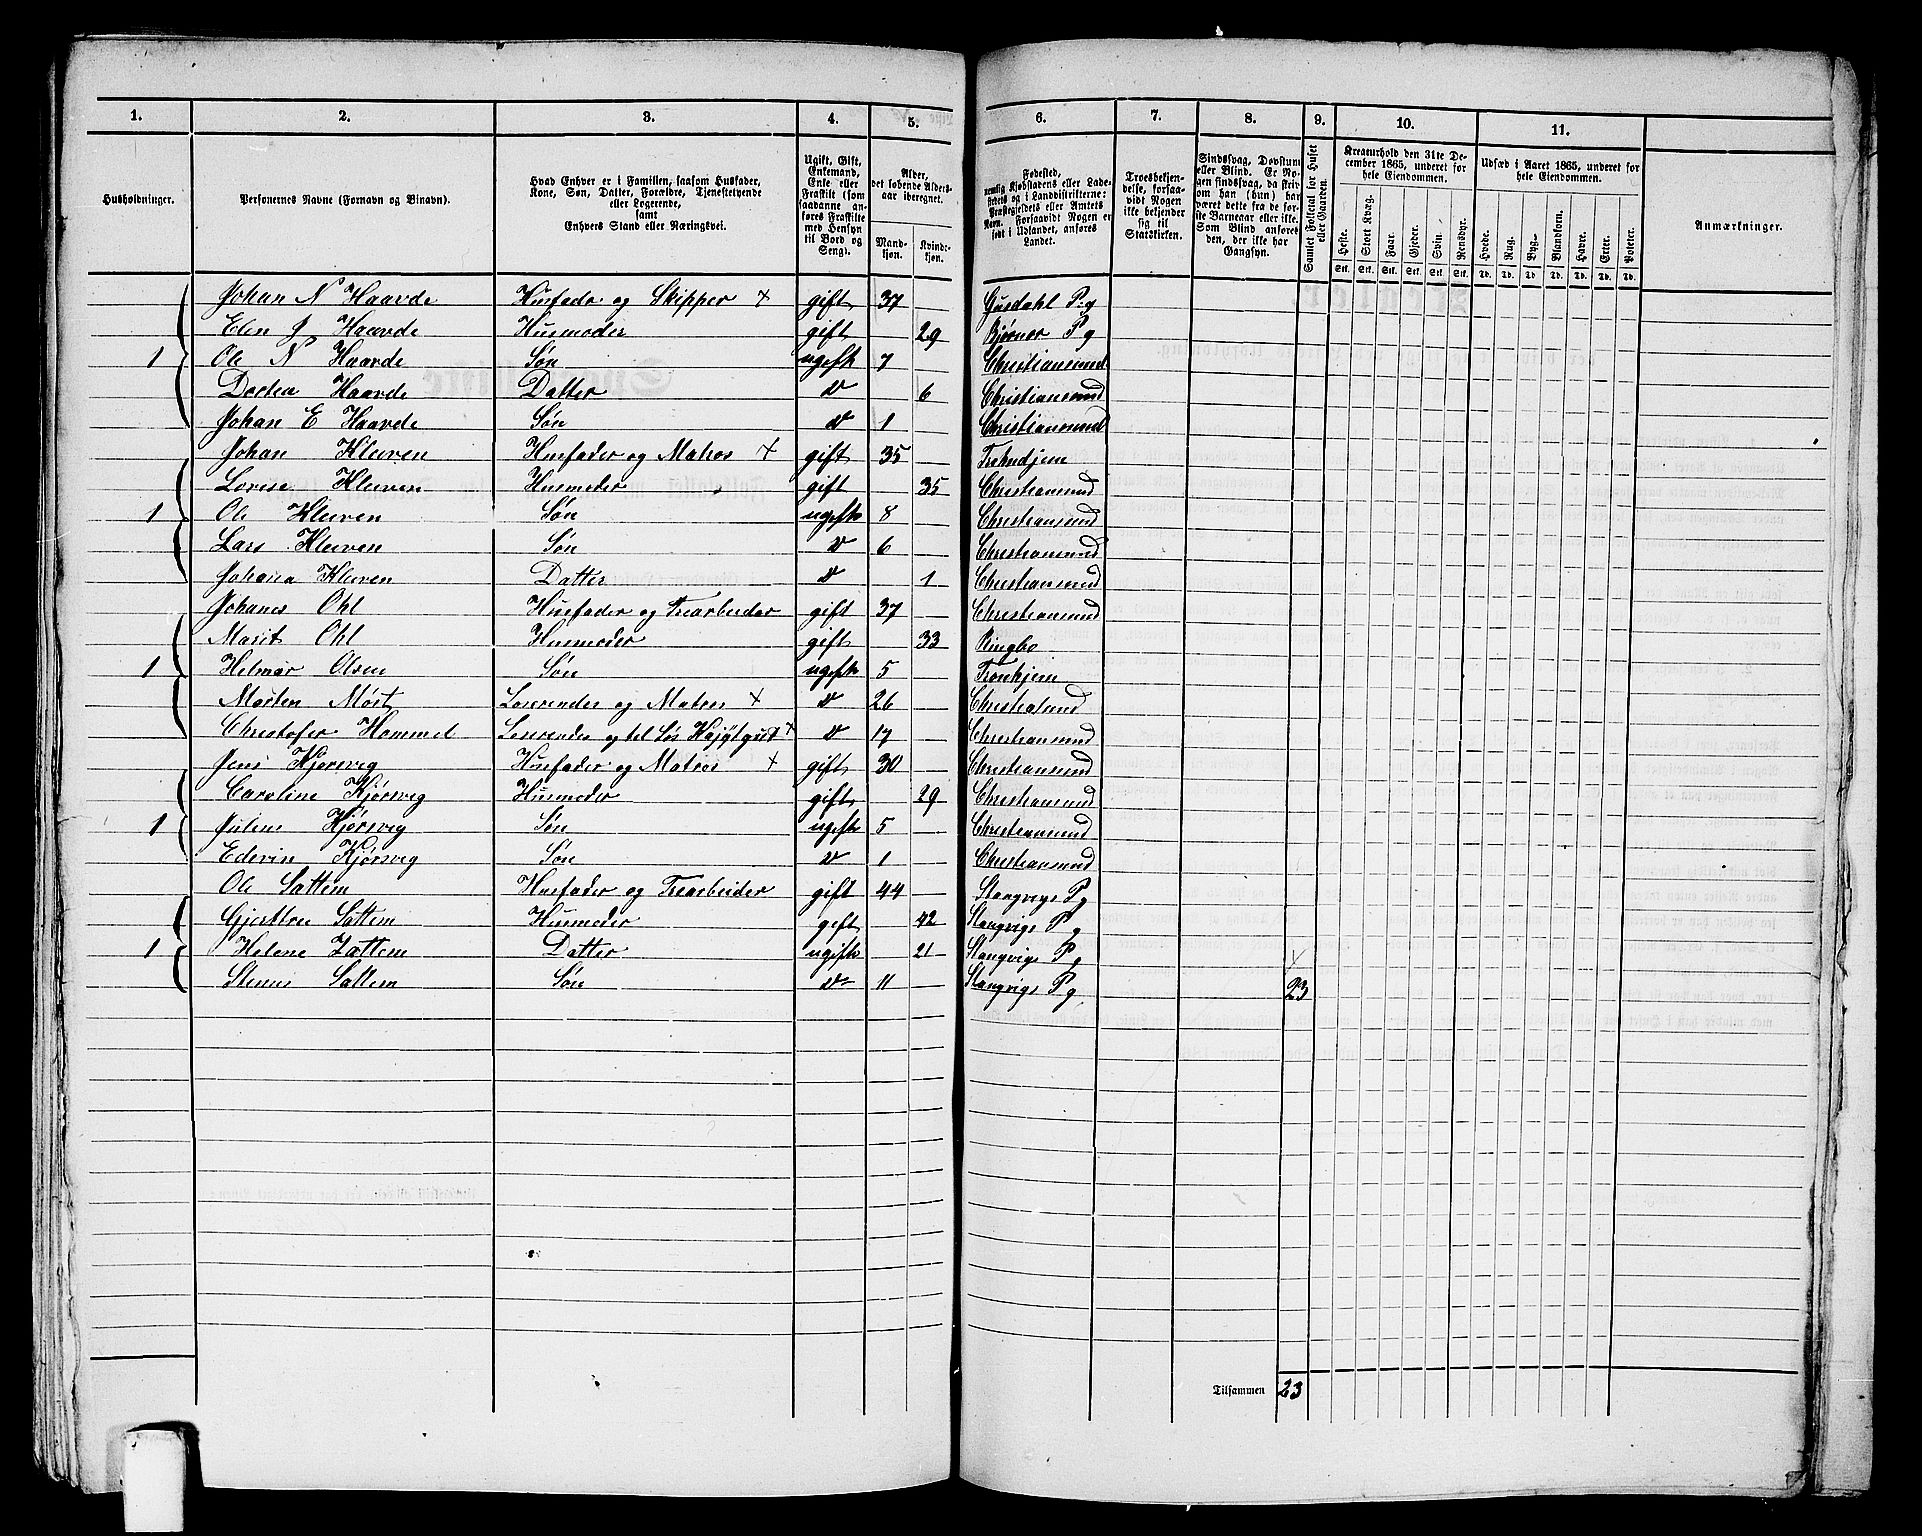 1. 2. 3. 4. 5. 6. 7. 8. 9. 10. 11.
Husholdninger.
Personernes Navne (Fornavn og Binavn).
Hvad Enhver er i Familien, saasom Husfader,
Kone, Søn, Datter, Forældre, Tjenestetyende
eller Logerende,
samt
Enhvers Stand eller Næringsvei.
Ugift, Gift,
Enkemand,
Enke eller
Fraskilt (som
saadanne an-
føres Fraskilte
med Hensyn
til Bord og
Seng).
Alder,
det løbende Alders-
aar iberegnet.
Mand-
kjøn.
Kvind-
kjøn.
Fødested,
nemlig Kjøbstadens eller Lade-
stedets og i Landdistrikterne:
Præstegjeldets eller Amtets
Navn. Forsaavidt Nogen er
født i Udlandet, anføres
Landet.
Troesbekjen-
delse, forsaa-
vidt Nogen
ikke bekjender
sig til
Statskirken.
Sindssvag, Døvstum
eller Blind. Er No-
gen sindssvag, da skriv
om han (hun) har
været dette fra de før-
ste Barneaar eller ikke.
Som Blind anføres
den, der ikke har
Gangsyn.
Samlet Folketal for Huset
eller Gaarden.
Kreaturhold den 31te De-
cember 1865, underet for
hele Eiendommen.
Heste. Stort Kvæg. Faar. Gjeder. Svin. Rensdyr.
Stk. Stk. Stk. Stk. Stk. Stk.
Udsæd i Aaret 1865, underet for
hele Eiendommen.
Hvede. Rug. Byg. Blandkorn. Havre. Erter. Poteter.
Td. Td. Td. Td. Td. Td. Td.
Anmærkninger.
Johan N Haavde Husfader og Skipper + gift 37 Gusdahl P:g
Elen J Haavde Husmoder gift 29 Bjørnor P g
1 Ole N Haavde Søn ugift 7 Christiansund
Dortea Haavde Datter " 6 Christiansund
Johan E Haavde Søn " 1 Christiansund
Johan Kleiven Husfader og Matros + gift 35
Lovise Kleiven Husmoder gift 35 Christiansund
1 Ole Kleiven Søn ugift 8 Christiansund
Lars Kleiven Søn " 6 Christiansund
Johana Kleiven Datter " 1 Christiansund
Johanes Ohl Husfader og Træarbeider gift 37 Christiansund
Marit Ohl Husmoder gift 33 Ringbo
1 Helmar Olsen Søn ugift 5 Tronhjem
Morten Møst og Matros + " 26
Christofer Hammel + " 17 Christiansund
Jens Kjørsvig Husfader og Matros + gift 30 Christiansund
Caroline Kjørsvig Husmoder gift 29 Christiansund
1 Kjørsvig Søn ugift 5 Christiansund
Edevin Kjørsvig Søn " 1 Christiansund
Ole Sættem Husfader og Træarbeider gift 44 Stangvigs P g
Gjertru Sættem Husmoder gift 42 Stangvigs P g
1 Helene Sættem Datter ugift 21 Stangvigs P g
Sættem Søn " 11 Stangvigs P g 23
Tilsammen 23